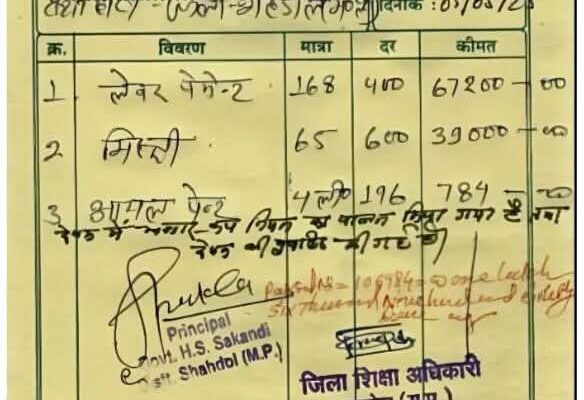 दिनांक : 05/05/25
क्र. विवरण मात्रा दर कीमत
1 लेबर पेमेन्ट 168 400 67200 - 00
2 मिस्त्री 65 600 39000 - 00
3 आयल पेन्ट 4 ली० 196 784 - 00
का पालन किया गया है तथा
की गई
Passed Rs = 106984 = 00 one lakh
Six thousand Nine hundred and eighty
four
Principal
Govt. H.S. Sakandi
Distt. Shahdol (M.P.)
जिला शिक्षा अधिकारी